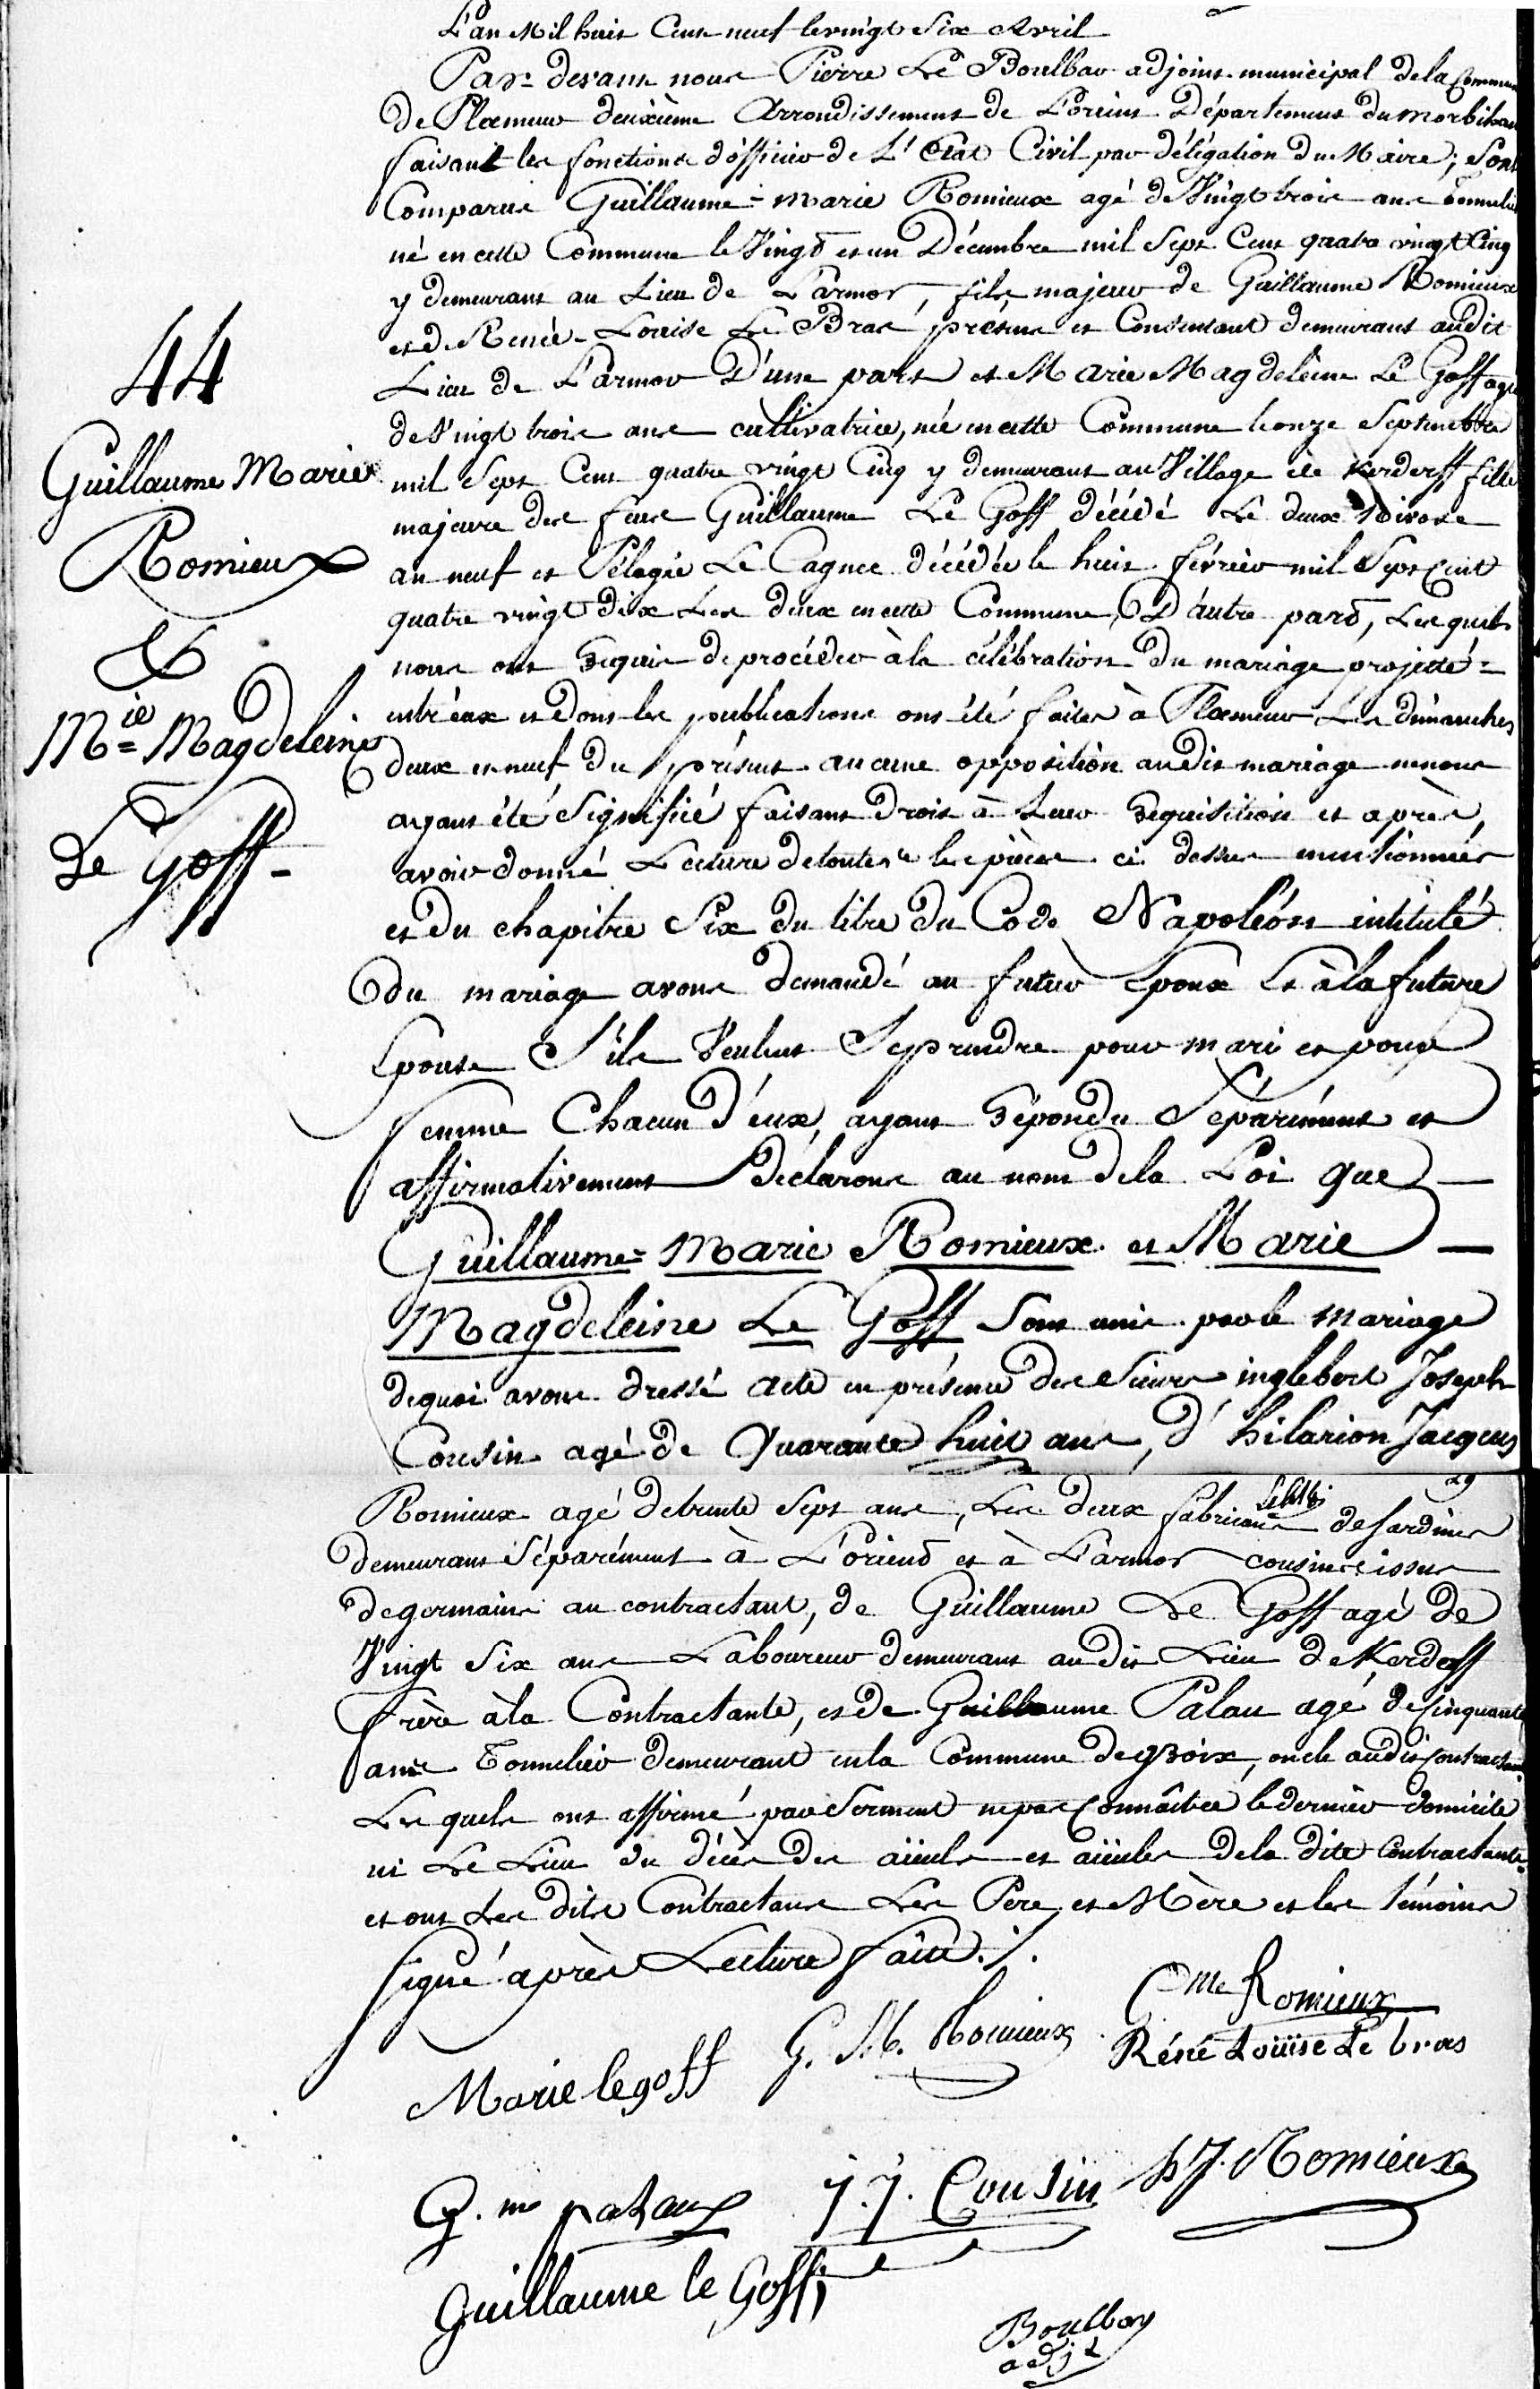 L'an Mil huit Cent neuf le vingt Six Avril
Par-devant nous Pierre Le Boulbar adjoint municipal de la Commune
de Ploemeur deuxième Arrondissement de L'orient Département du Morbihan
faisant les fonctions d'officier de L'Etat Civil par délégation du Maire; Sont
Comparus Guillaume-Marie Romieux agé de Vingt trois ans Tonnelier
né en cette Commune le Vingt et un Décembre mil Sept Cent quatre vingt Cinq
y demeurant au Lieu de L'armor, fils majeur de Guillaume Romieux
et de Renée-Louise Le Bras présens et Consentant demeurant audit
Lieu de L'armor D'une part et Marie Magdeleine Le Goff agée
de Vingt trois ans cultivatrice, née en cette Commune le onze Septembre
mil Sept Cent quatre vingt Cinq y demeurant au Village de Kerderff fille
majeure des feus Guillaume Le Goff décédé Le deux Nivose
an neuf et Pélagie Le Cagnec décédée le huit février mil Sept Cent
quatre vingt dix Les deux en cette Commune, D'autre part, Lesquels
nous ont requis de procéder à la célébration du mariage projetté
entr'eux et dont les publications ont été faites à Ploemeur Les dimanches
deux et neuf du présent aucune opposition audit mariage ne nous
ayant été Signifié faisant Droit à Leur requisition et après
avoir donné Lecture de toutes les pièces ci dessus mentionnées
et du chapitre Six du titre du Code Napoléon intitulé
du mariage avons demandé au futur Epoux et à la future
Epouse S'ils Veulent Se prendre pour mari et pour
femme Chacun d'eux, ayant répondu Séparément et
affirmativement Déclarons au nom de la Loi que
Guillaume-Marie Romieux et Marie
Magdeleine Le Goff Sont unis par le mariage
de quoi avons dressé acte en présence des Sieurs inglebert Joseph
Cousin agé de Quarante huit ans, d'hilarion Jacques
29
Romieux agé de trente Sept ans, Les deux fabricans de Sardines
demeurans Séparément à L'orient et à L'armor cousins issus
de germains au contractant, de Guillaume Le Goff agé de
Vingt Six ans Laboureur demeurant audit Lieu de Kerderff
frère à la Contractante, et de Guillaume Palau agé de Cinquante
ans Tonnelier demeurant en la Commune de groix, oncle audit Contractant
Lesquels ont affirmé par Serment ne pas Connâitre le dernier domicile
ni Le Lieu du décès des aïeuls et aïeules de la dite Contractante
et ont Les dits Contractans Les Pere et Mère et les témoins
signé après Lecture faite ./.
Gme Romieux
Marie legoff G. M. Romieux Réné Louise Le bras
G.m palaux J.J. Cousin h J. Romieux
Guillaume le Goff
Boulbar
adjt
44
Guillaume Marie
Romieux
&
Mie Magdeleine
Le Goff